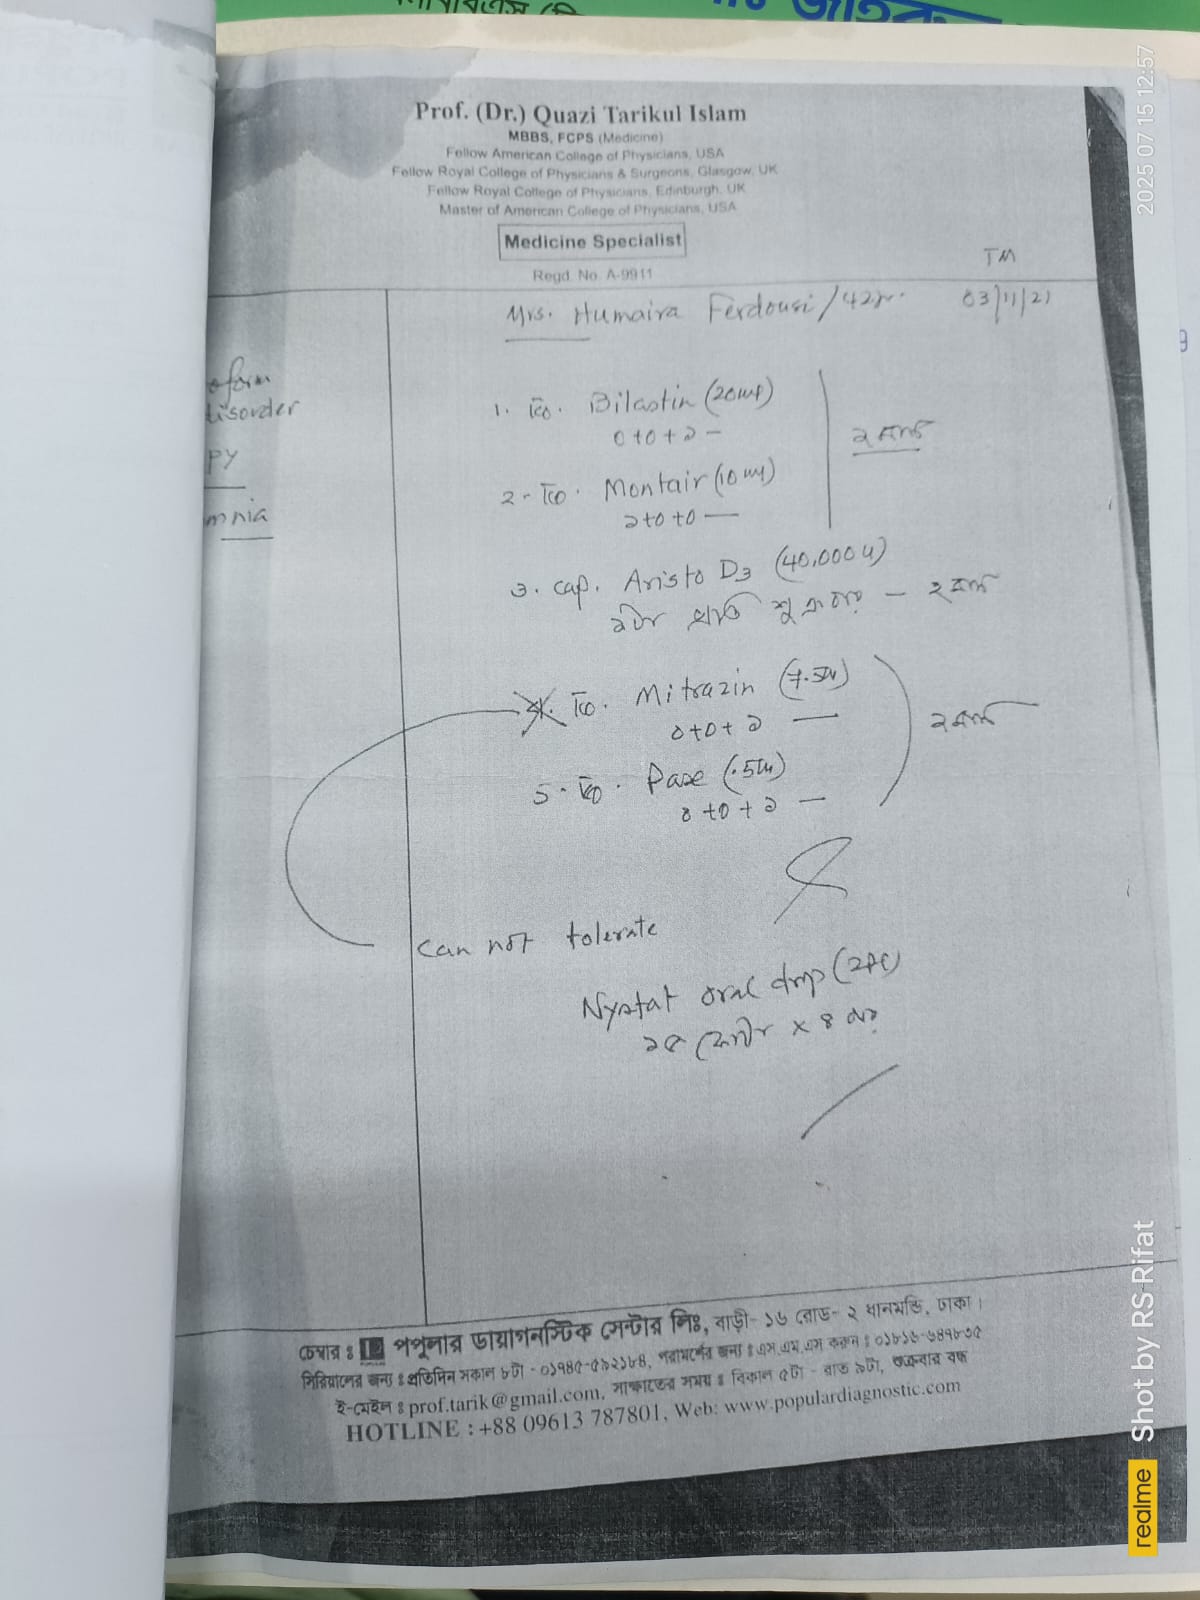 Prof. (Dr.) Quazi Tarikul Islam
MBBS, FCPS (Medicine)
Fellow American College of Physicians, USA
Fellow Royal College of Physicians & Surgeons, Glasgow, UK
Fellow Royal College of Physicians, Edinburgh, UK
Master of American College of Physicians, USA
Medicine Specialist
Regd. No. A-9911
TM
Mrs. Humaira Ferdousi / 42yr. 03/11/21
oform
disorder
PY
mnia
1. Tab. Bilastin (20mg)
0+0+১ —
২ মাস
2. Tab. Montair (10mg)
১+0+0 —
3. cap. Aristo D3 (40,000u)
১টা প্রতি শুক্রবার — ২ মাস
4. Tab. Mitrazin (7.5)
0+0+১ —
২ মাস
5. Tab. Pase (.5)
0+0+১ —
can not tolerate
Nystat oral drop
১৫ ফোঁটা x ৪ বার
চেম্বার : পপুলার ডায়াগনস্টিক সেন্টার লিঃ, বাড়ী- ১৬ রোড- ২ ধানমন্ডি, ঢাকা।
সিরিয়ালের জন্য : প্রতিদিন সকাল ৮টা - পরামর্শের জন্য : এস.এম.এস করুন :
ই-মেইল : prof.tarik@gmail.com, সাক্ষাতের সময় : বিকাল ৫টা - রাত ৯টা, শুক্রবার বন্ধ
HOTLINE : +88 09613 787801, Web: www.populardiagnostic.com
2025 07 15 12:57
Shot by RS-Rifat
realme